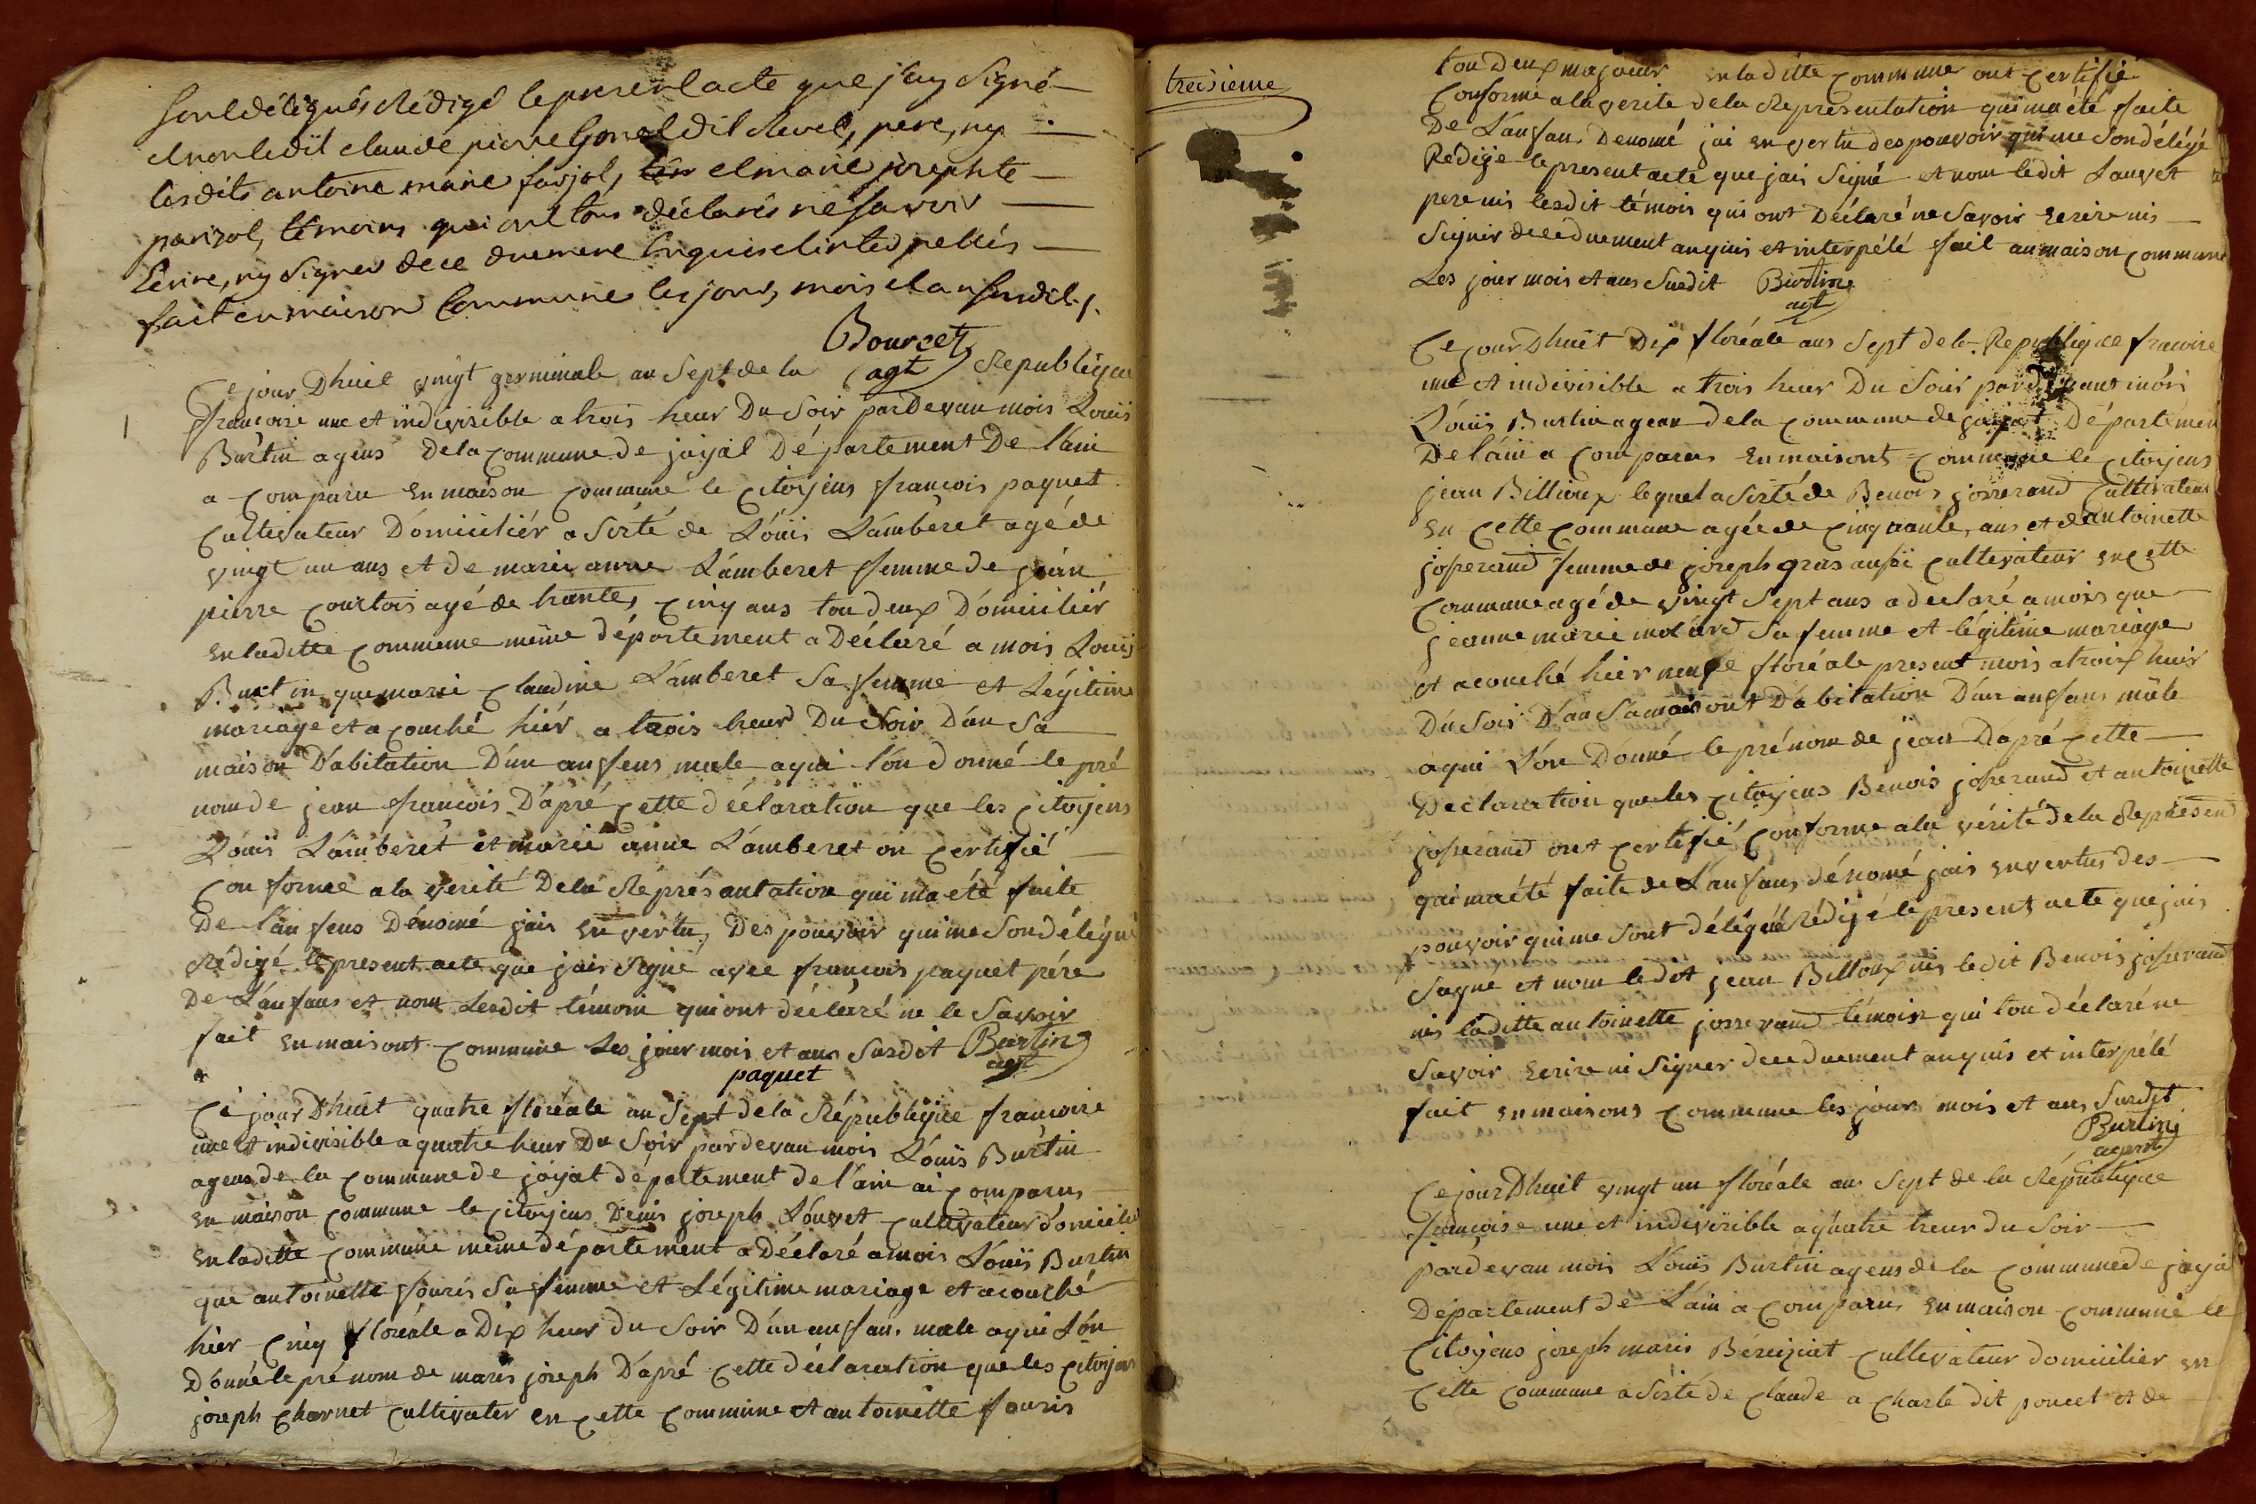 sont délégués Rédigé le present acte que j'ay Signé
et non ledit claude pierre dit Revel, pere, ny
lesdits antoine marie farjol, et marie josephte
parizol, témoins qui ont tous déclarés ne Savoir
Ecrire, ny Signer de ce duement Enquis et interpellés
fait en maison Commune les jour, mois et an susdits.
Bourcet
agt
Ce jour Dhuit vingt germinale an Sept de la Republique
francoise une et indivisible a trois heur Du Soir pardevan mois Louis
Burtin agens de la commune de jayat Département De l'ain
a comparu en maison commune le citoyens francois paquet
cultivateur Domiciliér a sisté de Louis Lamberet agé de
vingt un ans et de marie anne Lamberet femme de jean
pierre courtois agé de trante cinq ans tou deux Domiciliér
en laditte commune même département a Déclaré a mois Louis
Burtin que marie claudine Lamberet Sa femme et Légitime
mariage et a couché hiér a trois heur Du Soir D'an Sa
maison D'abitation D'un anfens male a qui l'on donné le pré
nom de jean francois D'apré cette déclaration que les citoyens
Louis Lamberet et marie anne Lamberet on certifié
conforme a la verité De la Représantation qui ma été faite
De l'anfens Dénomé jais en vertu Des pouvoir qui me Son délégué
Rédigé le present acte que jais Signé avec francois paquet pére
De L'anfans et nom Lesdit témoin qui ont déclaré ne le Savoir
fait en maisont commune Les jour mois et ans Susdit Burtin
agt
paquet
Ce jour Dhuit quatre floréale an Sept de la République francoise
une et indivisible a quatre heur Du Soir pardevan mois Louis Burtin
agens de la commune de jayat département de l'ain ai comparus
en maison commune le citoyens Denis joseph Louvet cultivateur domicilié
en laditte commune même département a Déclaré a mois Louis Burtin
que antoinette fouris Sa femme et Légitime mariage et acouché
hier cinq floréale a Dix heur du Soir D'un anfan male a qui L'on
Donné le pré nom de marie joseph D'apré cette déclaration que les citoyens
joseph charnet cultivater en cette commune et antoinette fouris
treisieme
tou Deux majoeur en laditte commune ont certifié
conforme a la verite de la Représentation qui ma été faite
De L'anfan Denomé jai en vertu des pouvoir qui me Son délégé
Redigé le present acte que jais Signé et nom ledit Louvet
pere nis lesdit témoin qui ont Déclaré ne Savoir ecrire nis
Signér de ce duement anquis et interpélé fait an maison commune
Les jour mois et ans Susdit Burtin
agt
Ce jour Dhuit Dix floréale ans Sept de la Republique francoise
une et indivisible a trois heur Du Soir pardevant mois
Louis Burtin agean de la commune de jayat Départemen
De l'ain a comparus en maisont commune le citoyens
jean Billioux lequel a sisté de Benois josserand cultivateur
en cette commune agée de cinquante ans et de antoinette
josserand femme de joseph gras aussi cultivateur en cette
commune agé de vingt Sept ans a declaré a mois que
jeanne marie molard Sa femme et légitime mariage
et acouché hier neuf floréale present mois a troix heur
Du Soir D'an Sa maisont D'abitation D'un anfans mâle
a qui L'on Donné le prénom de jean D'apré cette
Déclaration que les citoyens Benois josserand et antoinette
josserand ont certifié conforme a la vérité de la Représend
qui ma été faite de L'anfans dénomé jais en vertus des
pouvoir qui me sont délégué Rédigé le present acte que jais
Sagne et nom ledit jean Billoux nis ledit Benois josserand
nis laditte antoinette josserand témoin qui ton déclaré ne
Savoir ecrire ni Signer de ce duement anquis et interpélé
fait en maisons commune les jour mois et ans Susdit
Burtin
agent
Ce jour Dhuit vingt un floréale an Sept de la République
françoise une et indivisible a quatre heur du Soir
pardevan mois Louis Burtin agens de la commune de jayat
Département de L'ain a comparus en maison commune le
Citoyens joseph marie Béreiziat cultivateur domicilier en
Cette commune a sisté de claude a Charle dit poncet et de